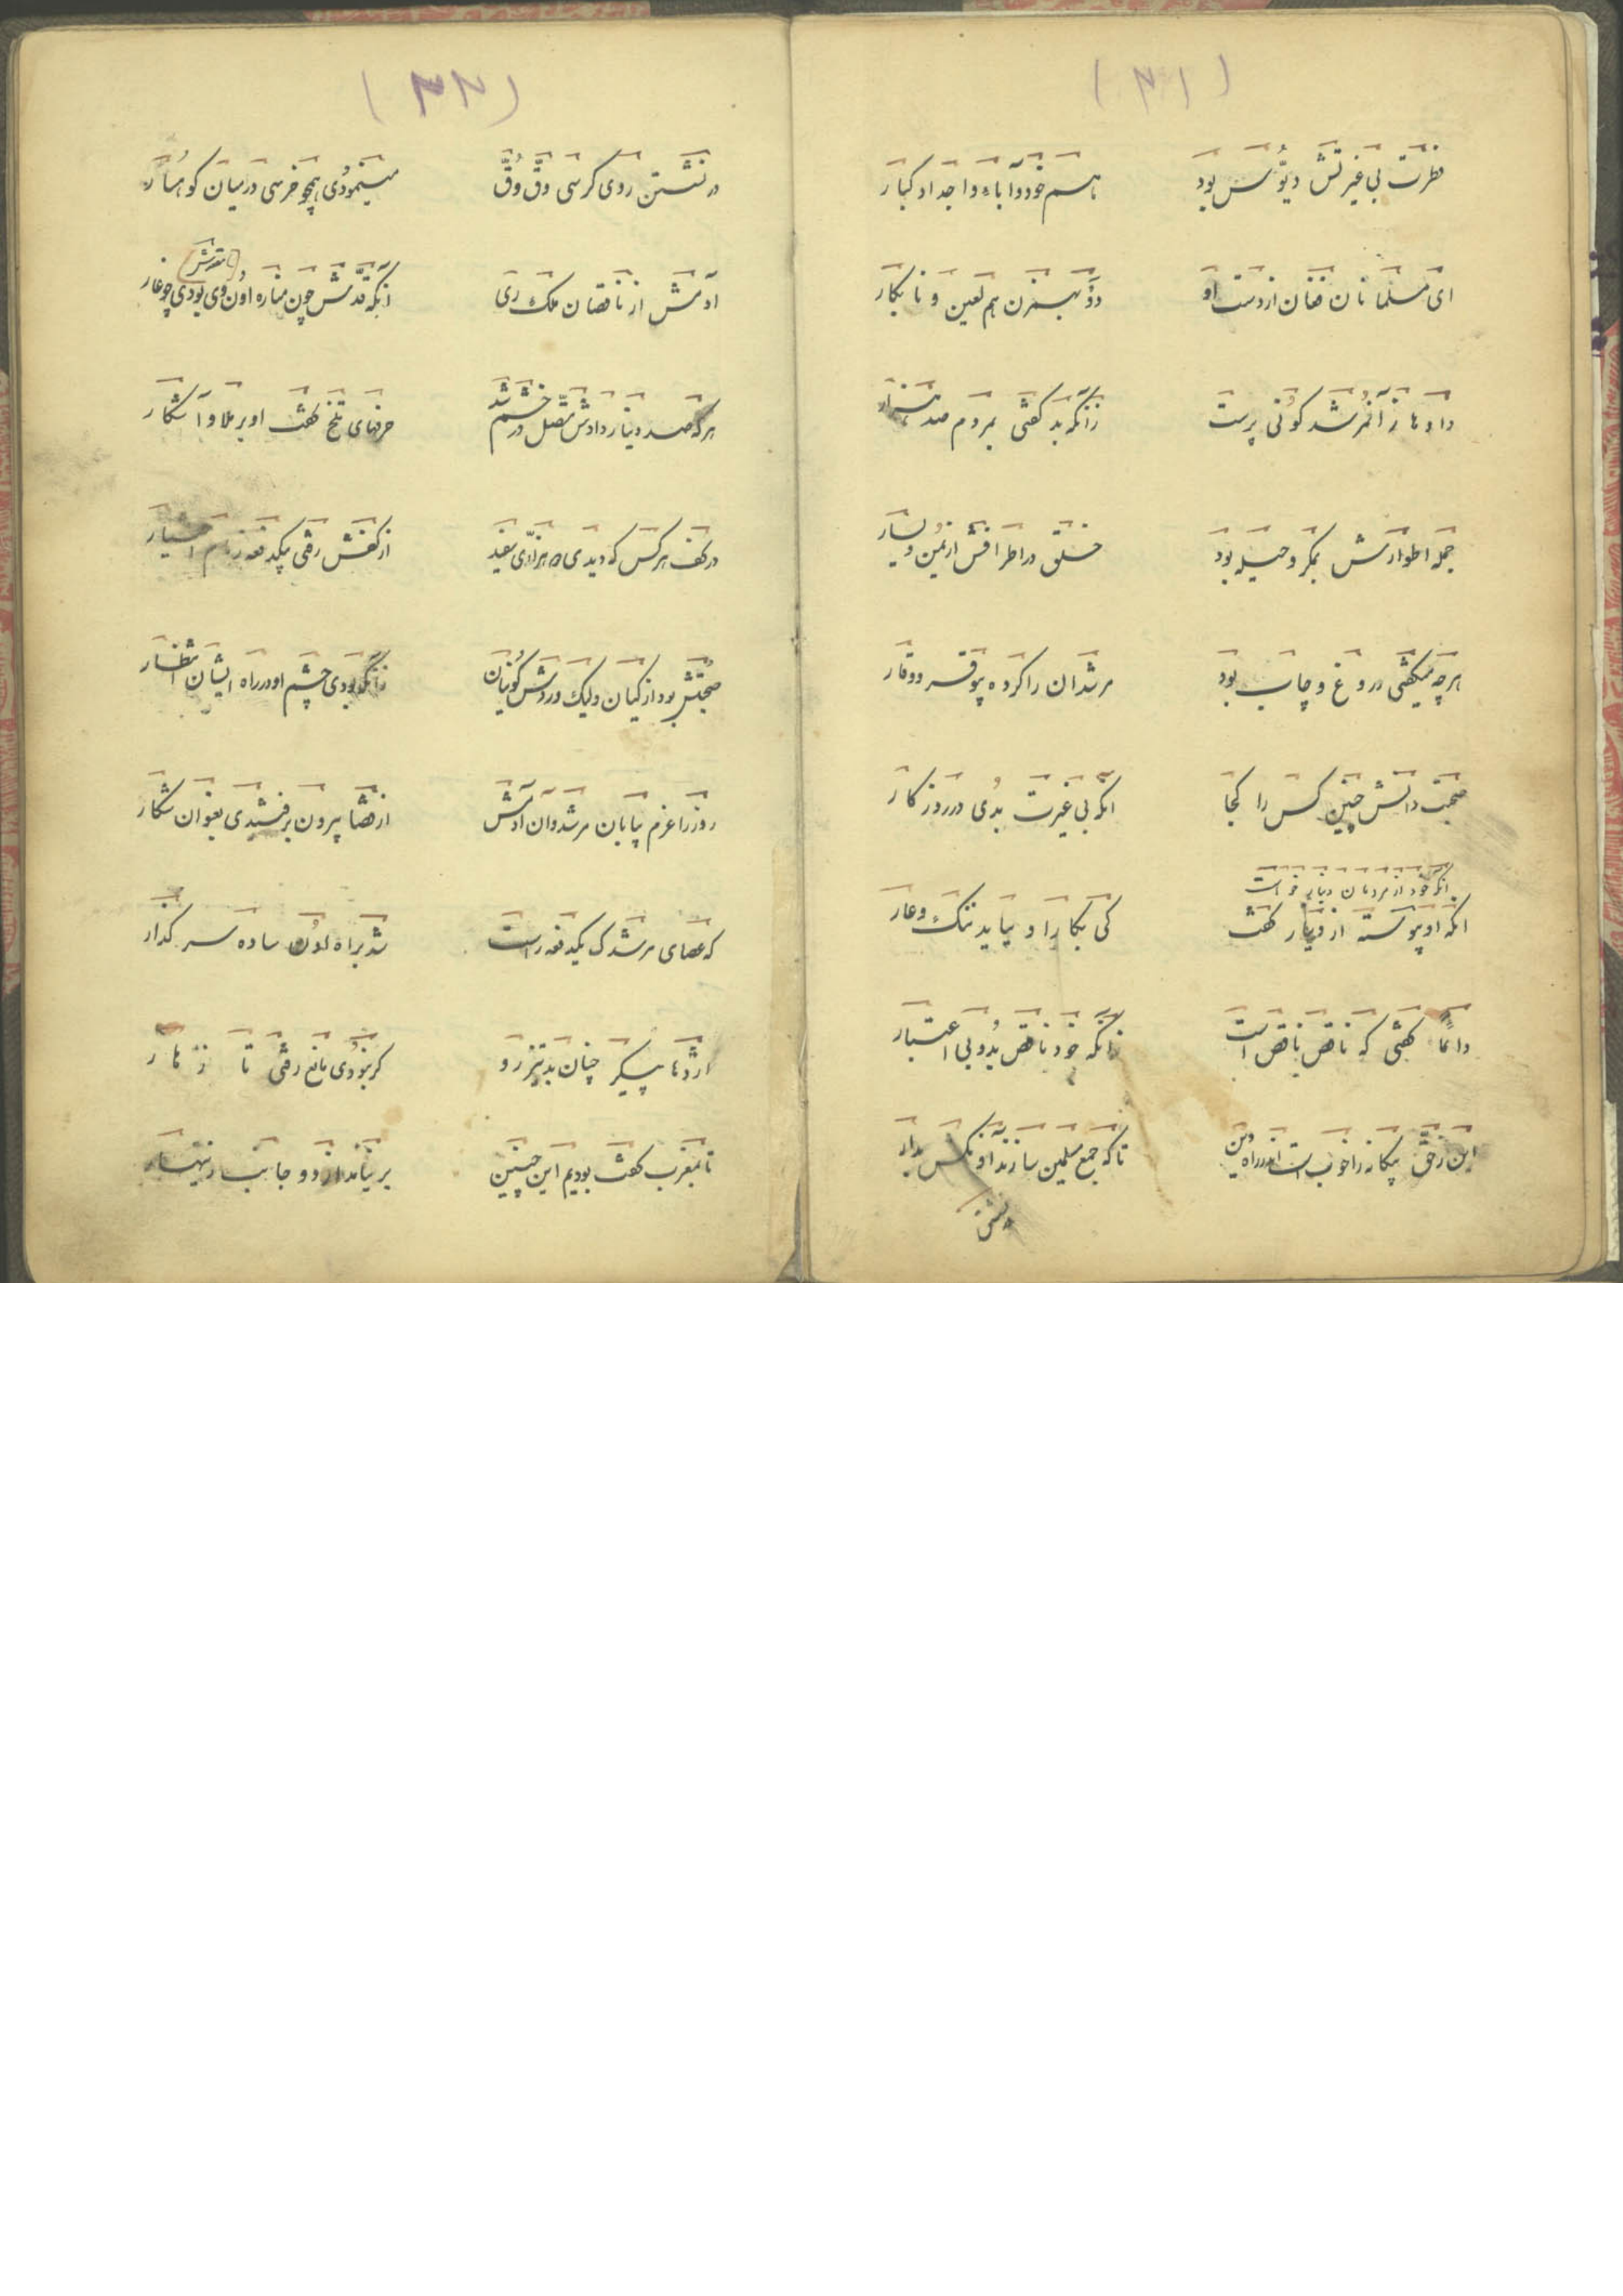 (۳۱)
فطرت بی غیرتش دیّوس بود
باسم خود و آباء و اجداد کبار
ای مسلمانان فغان از دست او
هم لعین و نابکار
دادها زآنمرشد کونی پرست
زآنکه بد گفتی بمردم صد هزار
جمله اطوارش بمکر و حیله بود
خلق در اطرافش از یمین و یسار
هرچه میگفتی دروغ و چاپ بود
مرشدان را کرده بوقر و وقار
صحبت دانش چنین کس را کجا
آنکه بی غیرت بُدی در روزکار
آنکه خود از مردمان دینار خواست
آنکه او پیوسته از دینار گفت
کی بکار او بیاید ننگ و عار
دائماً گفتی که ناقص ناقص است
زانکه خود ناقص بُدو بی اعتبار
این زقّ بیکانه را خوب است اندر راه دین
تا که جمع مسلمین سازند آونکش بدار
(۳۲)
در نشستن روی کرسی وقّ وُقّ
مینمودُی همچو خرسی در میان کوهسار
آدمش از ناقصان ملک ری
آنکه قدّش چون مناره اون وی بودی چو غار
هرکه صد دینار دادش متصل در خشم شد
حرفهای تلخ گفت او برملا و آشکار
در کف هرکس که دیدی ده هزاری سفید
از کفش رفتی بیکدفعه زمام اختیار
صحبتش بود از کیان ولیک وردش کونیان
زانکه بودی چشم او در راه ایشان انتظار
روز را عزم بیابان مرشد و آن آدمش
از قضا بیرون برفتندی بعنوان شکار
که عصای مرشدک یکدفعه راست
شد براه اون ساده سر کذار
اژدها پیکر چنان بد تیز رو
کر نبودی مانع رفتی تا زهار
تا بمغرب گفت بودیم این چنین
بر نیامد از دو جانب زینهار